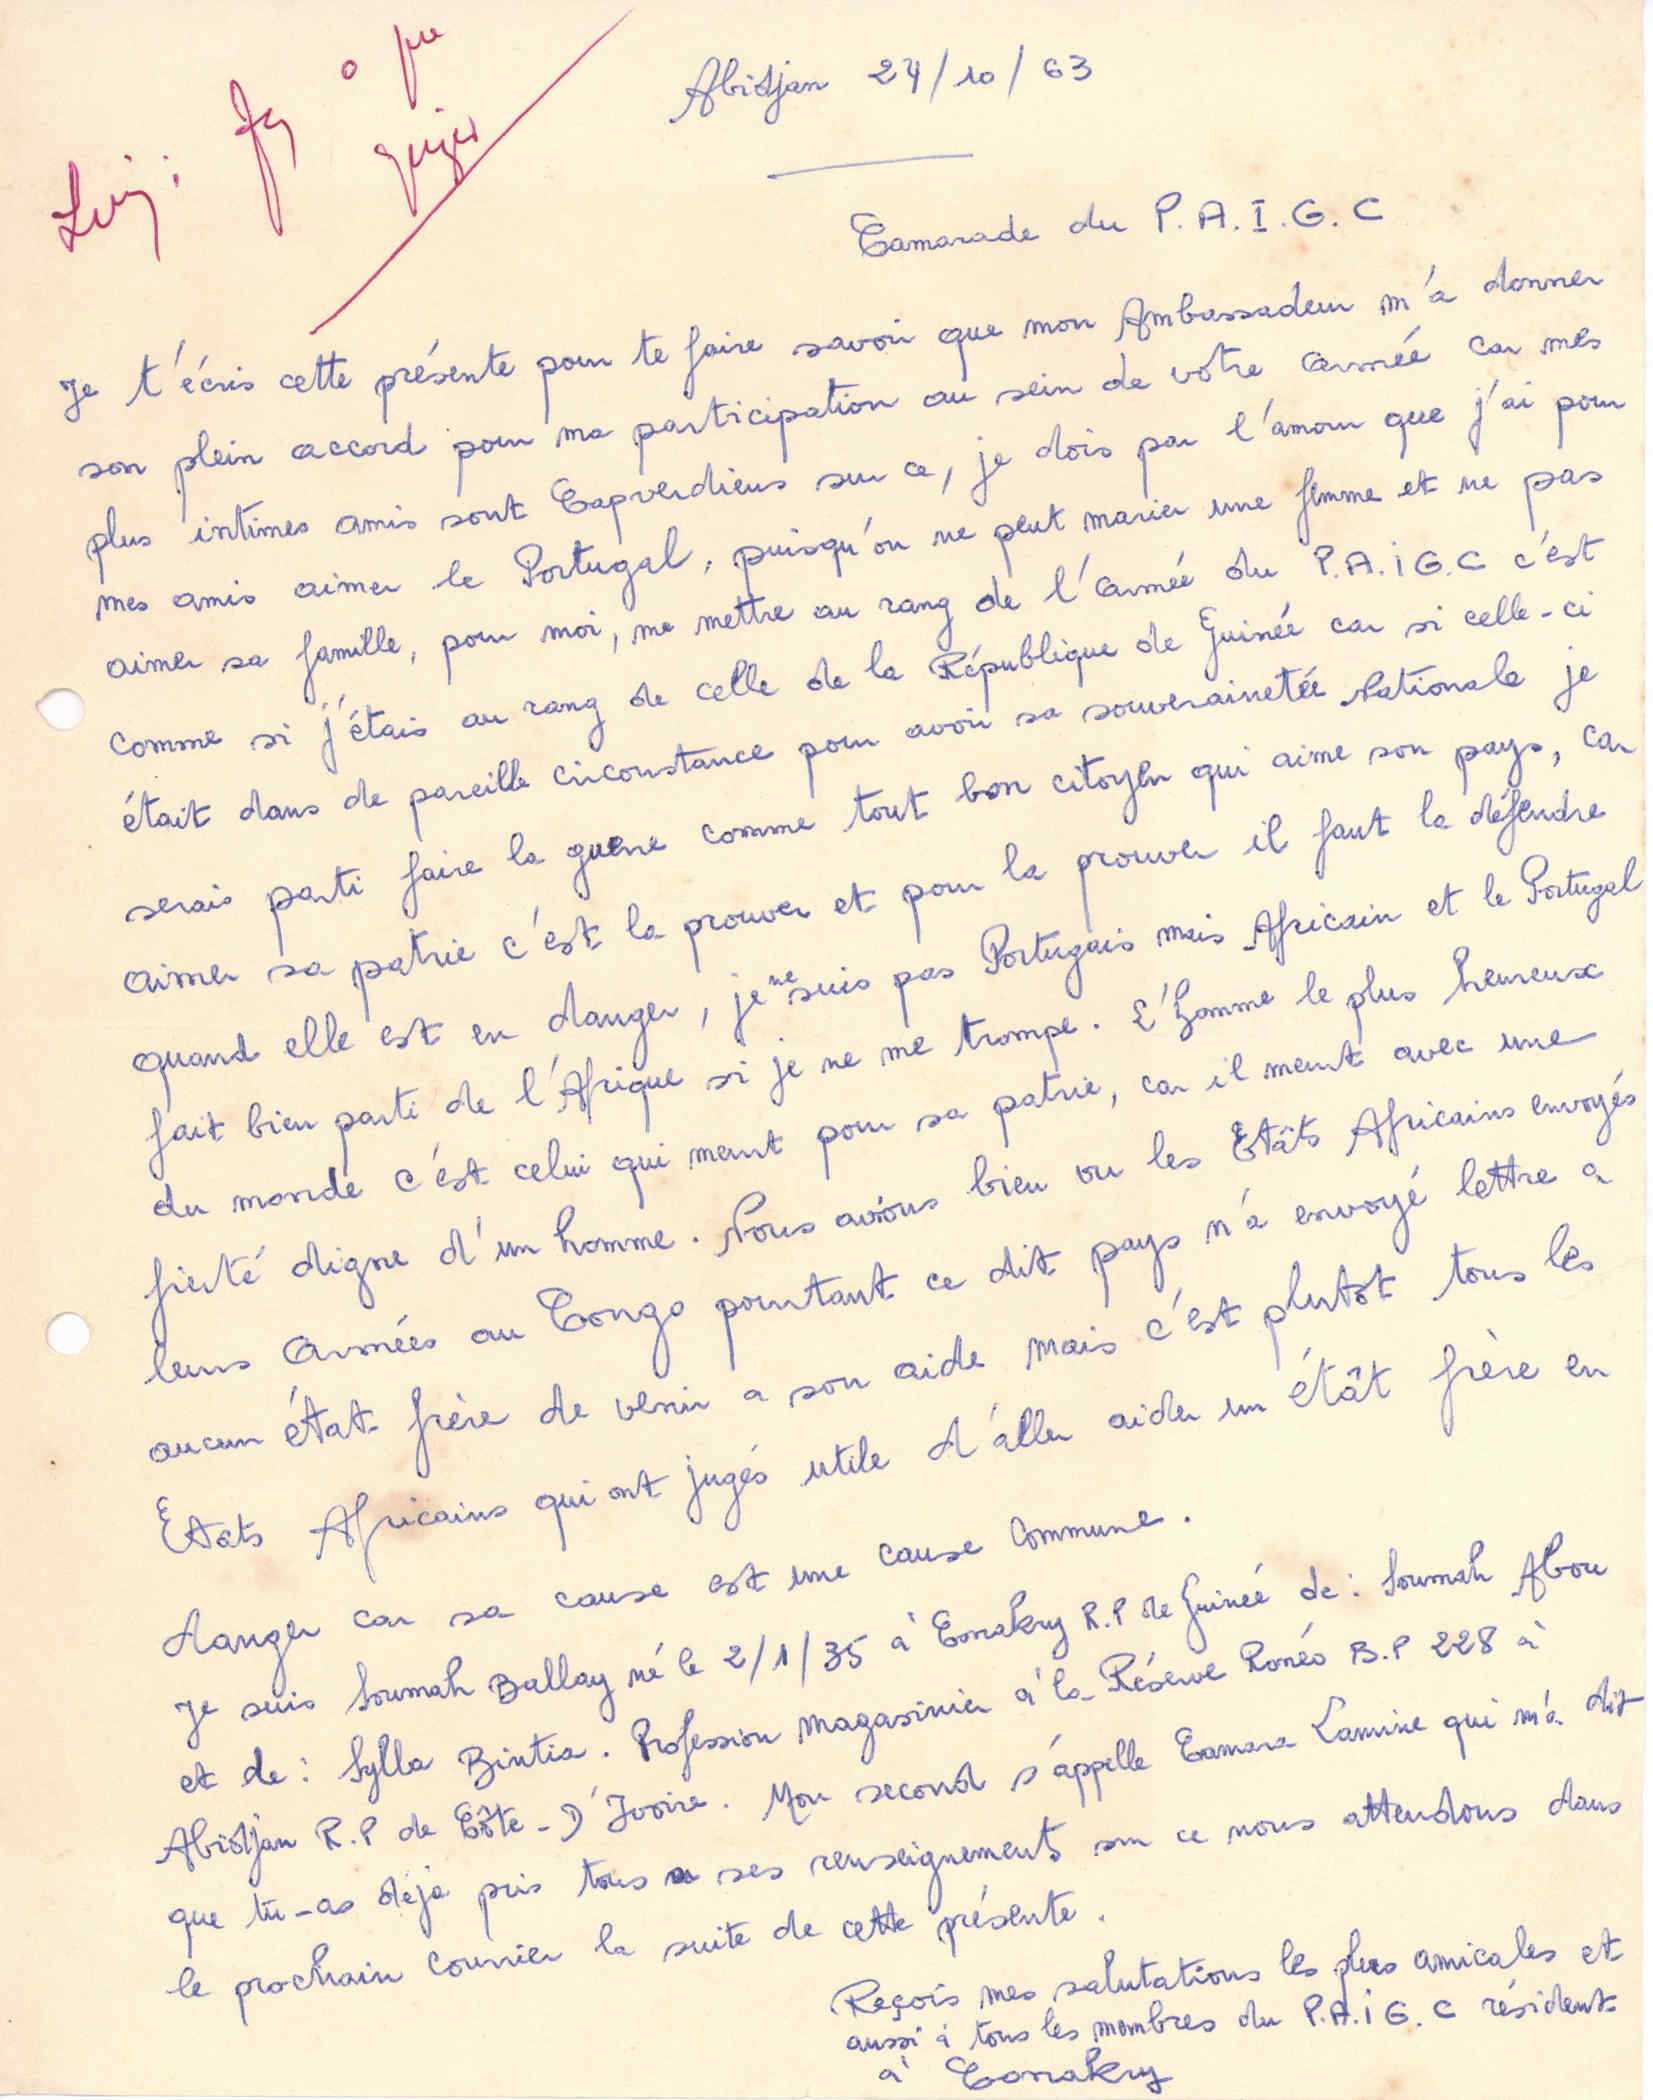 Abidjan 24/10/63
Camarade du P.A.I.G.C
Je t'écris cette présente pour te faire savoir que mon Ambassadeur m'a donner
son plein accord pour ma participation au sein de votre armée car mes
plus intimes amis sont Capverdiens sur ce, je dois par l'amour que j'ai pour
mes amis aimer le Portugal, puisqu'on ne peut marier une femme et ne pas
aimer sa famille, pour moi, me mettre au rang de l'armée du P.A.I.G.C c'est
comme si j'étais au rang de celle de la République de Guinée car si celle-ci
était dans de pareille circonstance pour avoir sa souverainetée Nationale je
serais parti faire la guerre comme tout bon citoyen qui aime son pays, car
aimer sa patrie c'est la prouver et pour la prouver il faut la défendre
quand elle est en danger, je ne suis pas Portugais mais Africain et le Portugal
fait bien parti de l'Afrique si je ne me trompe. L'homme le plus heureux
du monde c'est celui qui meurt pour sa patrie, car il meurt avec une
fierté digne d'un homme. Nous avions bien vu les Etâts Africains envoyés
leurs armées au Congo pourtant ce dit pays n'a envoyé lettre a
aucun état frère de venir a son aide mais c'est plutôt tous les
Etats Africains qui ont jugés utile d'aller aider un étât frère en
danger car sa cause est une cause commune.
Je suis Soumah Ballay né le 2/1/35 à Conakry R.P de Guinée de : Soumah Abou
et de : Sylla Bintia. Profession magasinier à la Réserve Ronéo B.P 228 à
Abidjan R.P de Côte-D'Ivoire. Mon second s'appelle Camara Lamine qui m'a dit
que tu-as déjà pris tous ses renseignements sur ce nous attendons dans
le prochain courrier la suite de cette présente.
Reçois mes salutations les plus amicales et
aussi à tous les membres du P.A.I.G.C résident
à Conakry